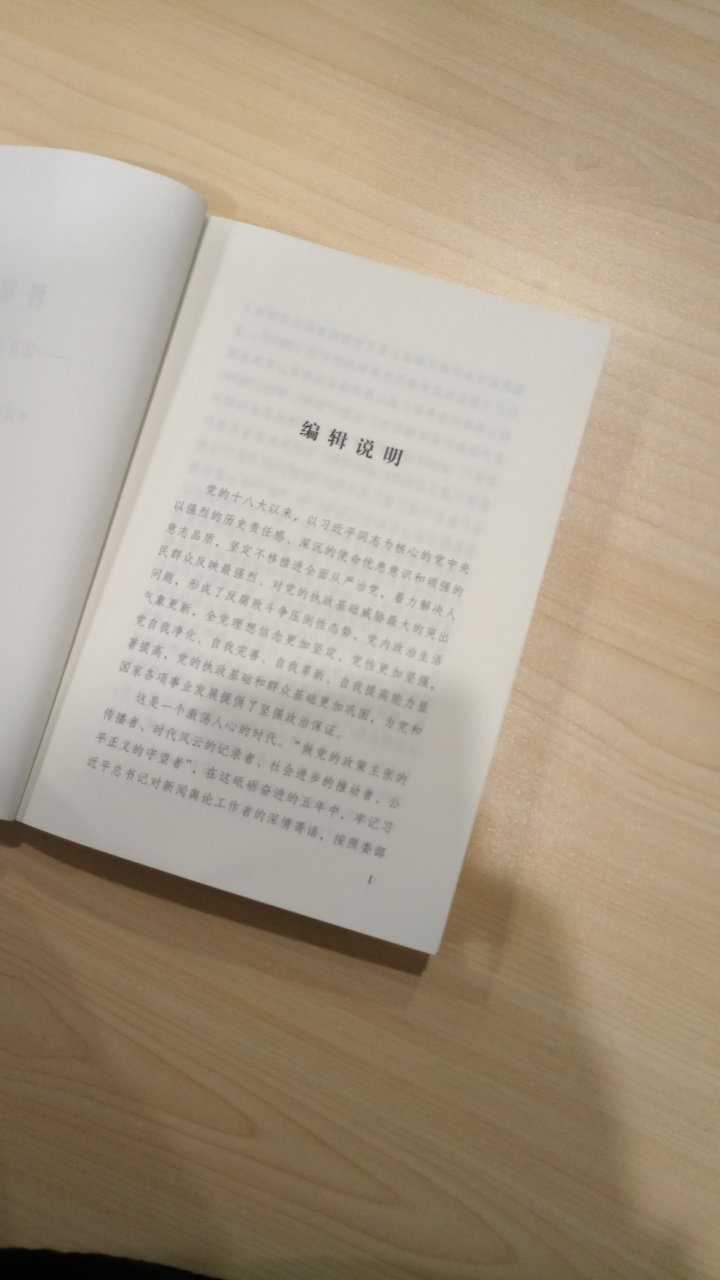 编辑说明
党的十八大以来，以习近平同志为核心的党中央
以强烈的历史责任感、深沉的使命忧患意识和顽强的
意志品质，坚定不移推进全面从严治党，着力解决人
民群众反映最强烈、对党的执政基础威胁最大的突出
问题，形成了反腐败斗争压倒性态势，党内政治生活
气象更新，全党理想信念更加坚定、党性更加坚强，
党自我净化、自我完善、自我革新、自我提高能力显
著提高，党的执政基础和群众基础更加巩固，为党和
国家各项事业发展提供了坚强政治保证。
这是一个激荡人心的时代。“做党的政策主张的
传播者、时代风云的记录者、社会进步的推动者、公
平正义的守望者”，在这砥砺奋进的五年中，牢记习
近平总书记对新闻舆论工作者的深情寄语，按照委部
1